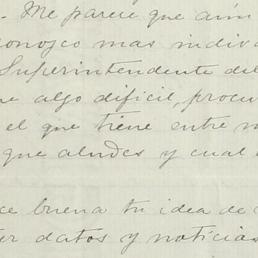 . Me parece que aún
conozco mas indiv
Superintendente del
e algo dificil, procu
el que tiene entre m
que aludes y cual
ce buena tu idea de
er datos y noticias